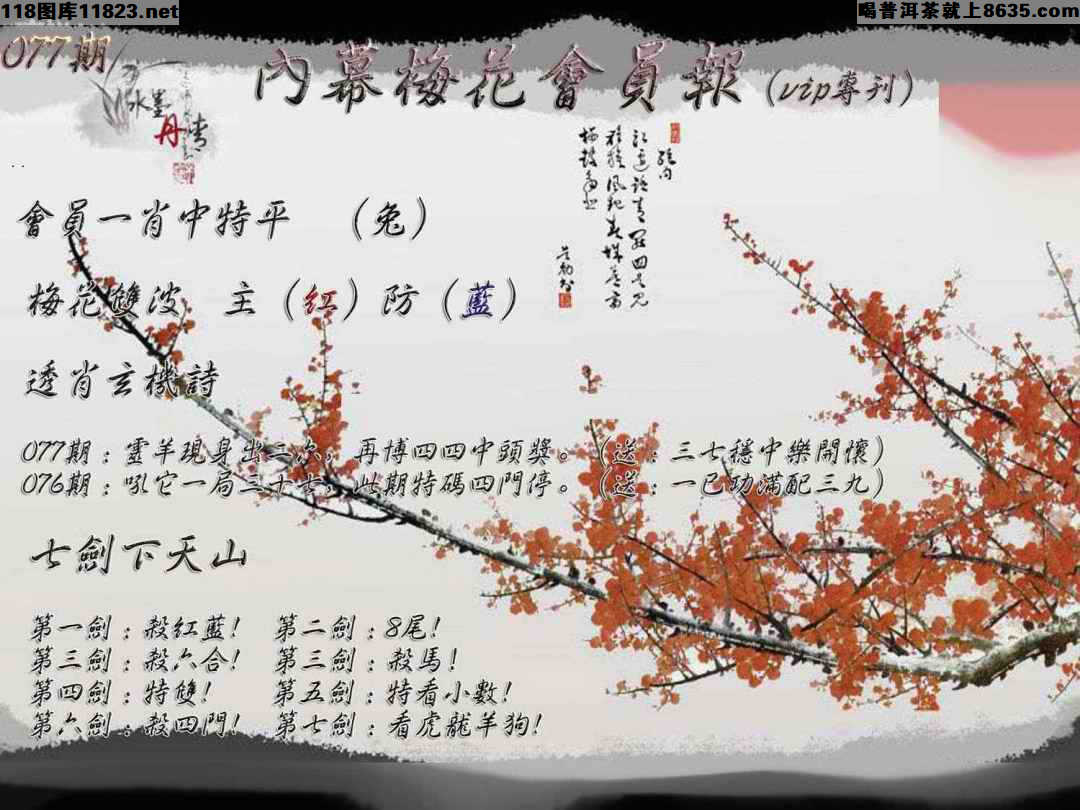 118图库11823.net
喝普洱茶就上8635.com
077期
內幕梅花會員報(vip專刊)
水墨
丹青
會員一肖中特平 （兔）
梅花雙波 主（紅）防（藍）
透肖玄機詩
077期：靈羊現身出二次，再博四四中頭獎。（送：三七穩中樂開懷）
076期：吼它一局三十七，此期特碼四門停。（送：一已功滿配三九）
七劍下天山
第一劍：殺紅藍！ 第二劍：8尾！
第三劍：殺六合！ 第三劍：殺馬！
第四劍：特雙！ 第五劍：特看小數！
第六劍：殺四門！ 第七劍：看虎龍羊狗！